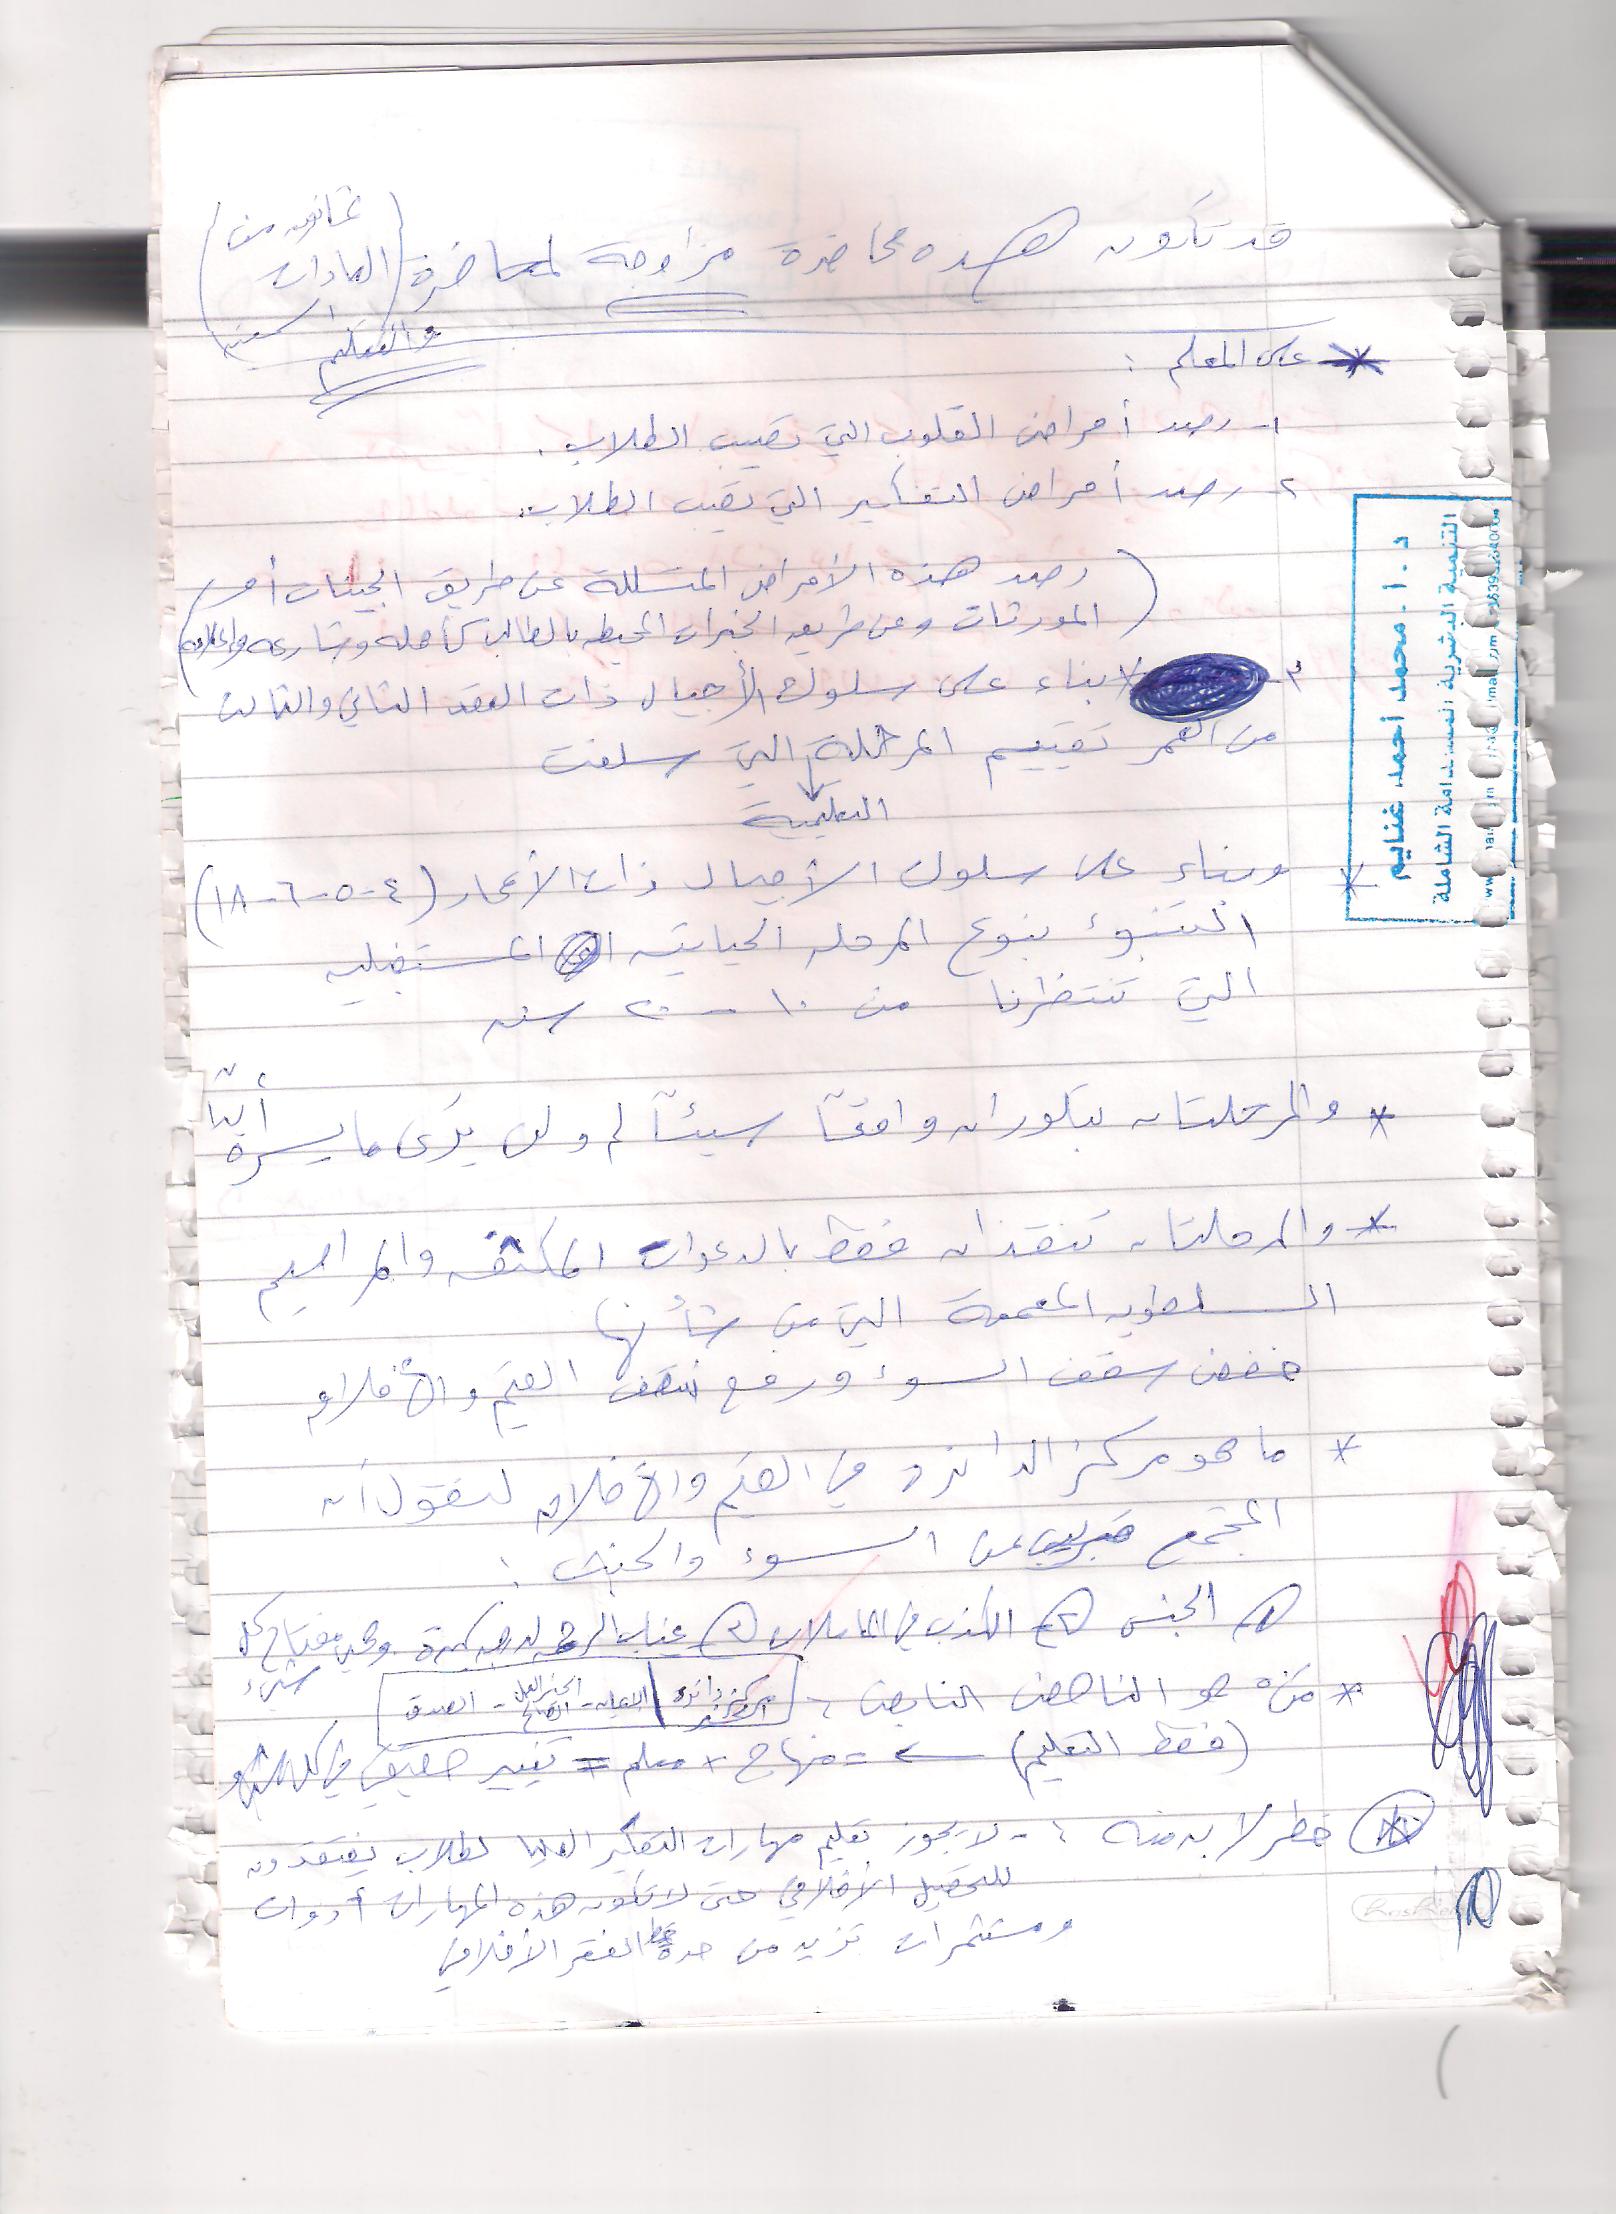 قد تكون هذه محاضرة مزاوجة لمحاضرة (ثمانون من
العادات السيئة)
والتعليم
* على المعلم :
١- رصد أمراض القلوب التي تصيب الطلاب .
٢- رصد أمراض التفكير التي تصيب الطلاب .
(رصد هذه الأمراض المتسللة عن طريق الجينات أو
الموروثات وعن طريق الخبرات المحيطه بالطالب كأهله وشارعه وإعلامه)
٣- * بناء على سلوك الأجيال ذات العقد الثاني والثالث
من العمر تقييم المرحلة التي سلفت
التعليمية
* وبناء على سلوك الأجيال ذات الأعمار (٤-٥-٦-١٨)
التنبوء بنوع المرحله الحياتيه المستقبليه
التي تنتظرنا من ١٠ - ٢٠ سنه
* والمرحلتان يبلوران واقعًا سيئًا لم ولن يرى ما يسره أبدًا
* والمرحلتان تنقذان فقط بالدعوات المكثفه والمراسيم
السلطويه المعممة التي من شأنها
خفض سقف السوء ورفع سقف القيم والأخلاق
* ما هو مركز الدائرة في القيم والأخلاق لنقول أن
المجتمع قريب من السوء والخبث :
١) الجنس ٢) الكذب في المعاملات ٣) غياب الرحمه لدرجه كبيرة وهي مفتاح كل شيء
* من هو الناهض النابض ؟ مركز دائرة الخير | الايمان - الخير العمل الصالح - الصدق
(فقط التعليم) ← = منهاج + معلم = تغيير حقيقي في كل
* خطر لا بد منه : - لا يجوز تعليم مهارات التفكير العليا لطلاب يفتقدون
للتحصيل الأخلاقي حتى لا تكون هذه المهارات أدوات
ومستثمرات تزيد من حدة الفقر الأخلاقي
د. أ. محمد أحمد غنايم
التنمية البشرية المستدامة الشاملة